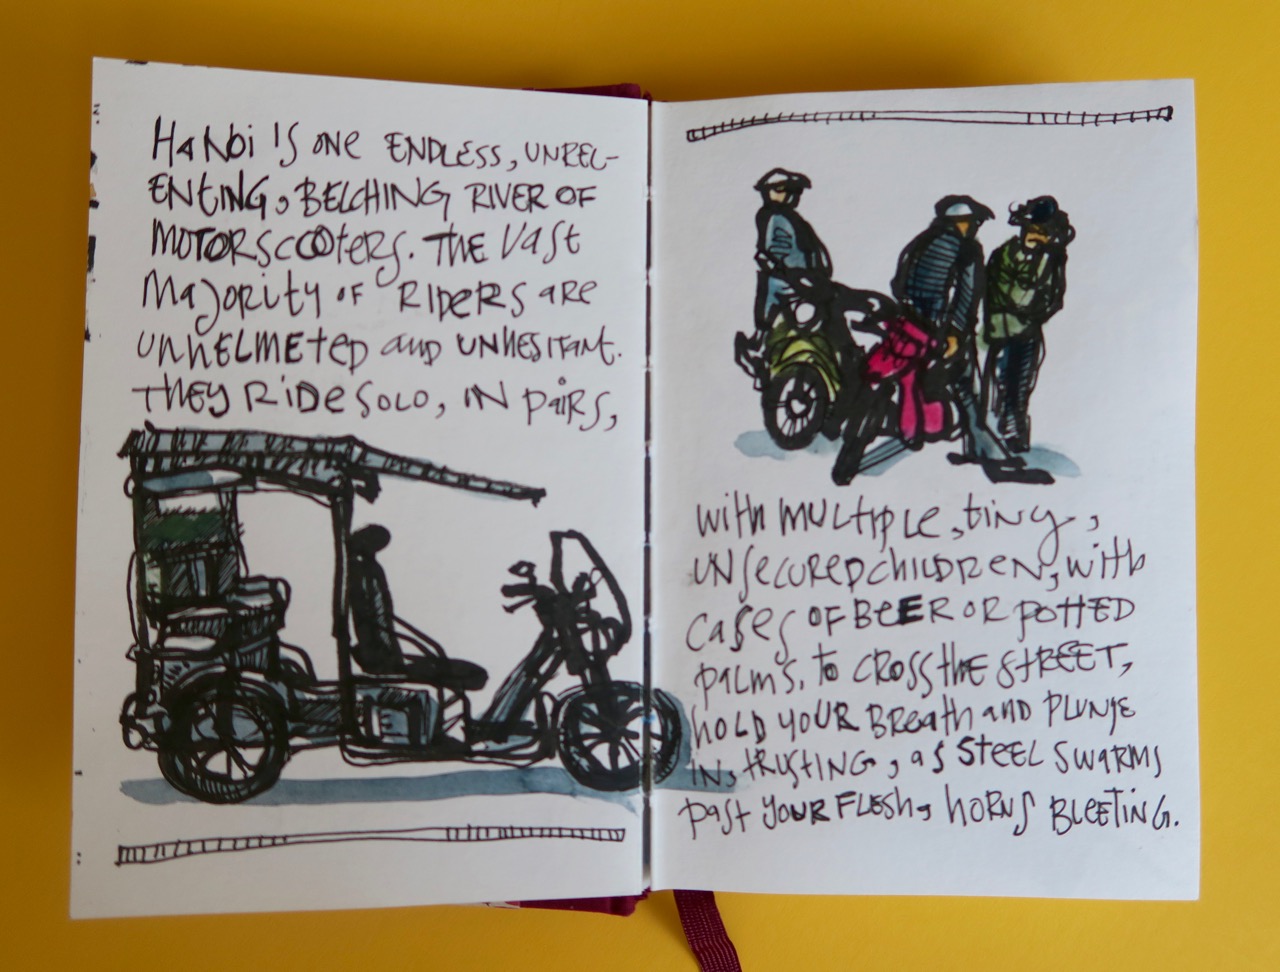 HaNoi iS ONE ENDLESS, UNREL-
ENtiNG, BELCHING RIVER OF
MOTORSCOOters. THE Vast
MaJority OF RiDERS are
UNHELMEteD aND UNHESITant.
THEY RiDE SOLO, IN PaiRS,
With MULtiPLE, tiny,
UNSECURED CHiLDREN, With
CaSeS OF BEER OR POttED
PaLMS. to CROSS the StREET,
HOLD YOUR BReath aND PLUNGE
IN, tRUStING, aS StEEL SWaRMS
PaSt YOUR FLESH, HORNS BLEETING.